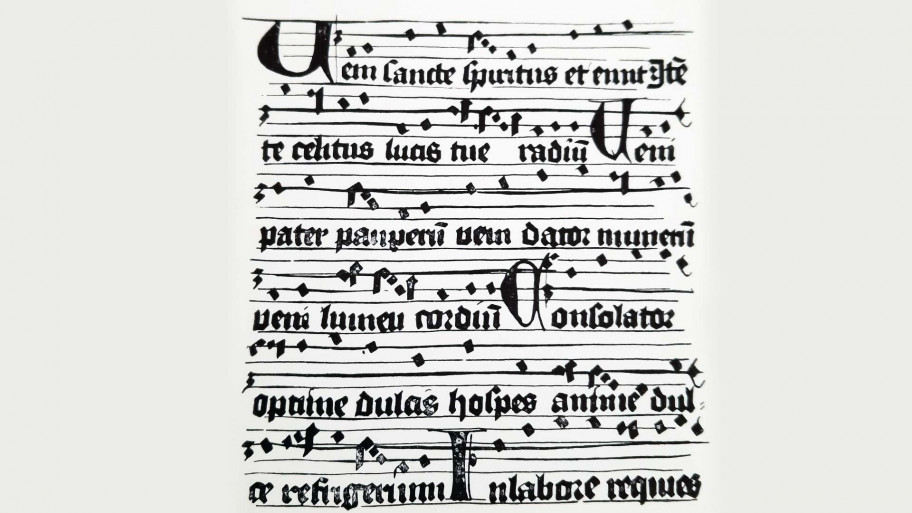 Veni sancte spiritus et emit
te celitus lucis tue radiū Veni
pater pauperū veni dator munerū
veni lumen cordiū Consolator
optime dulcis hospes anime dul
ce refrigerium In labore requies